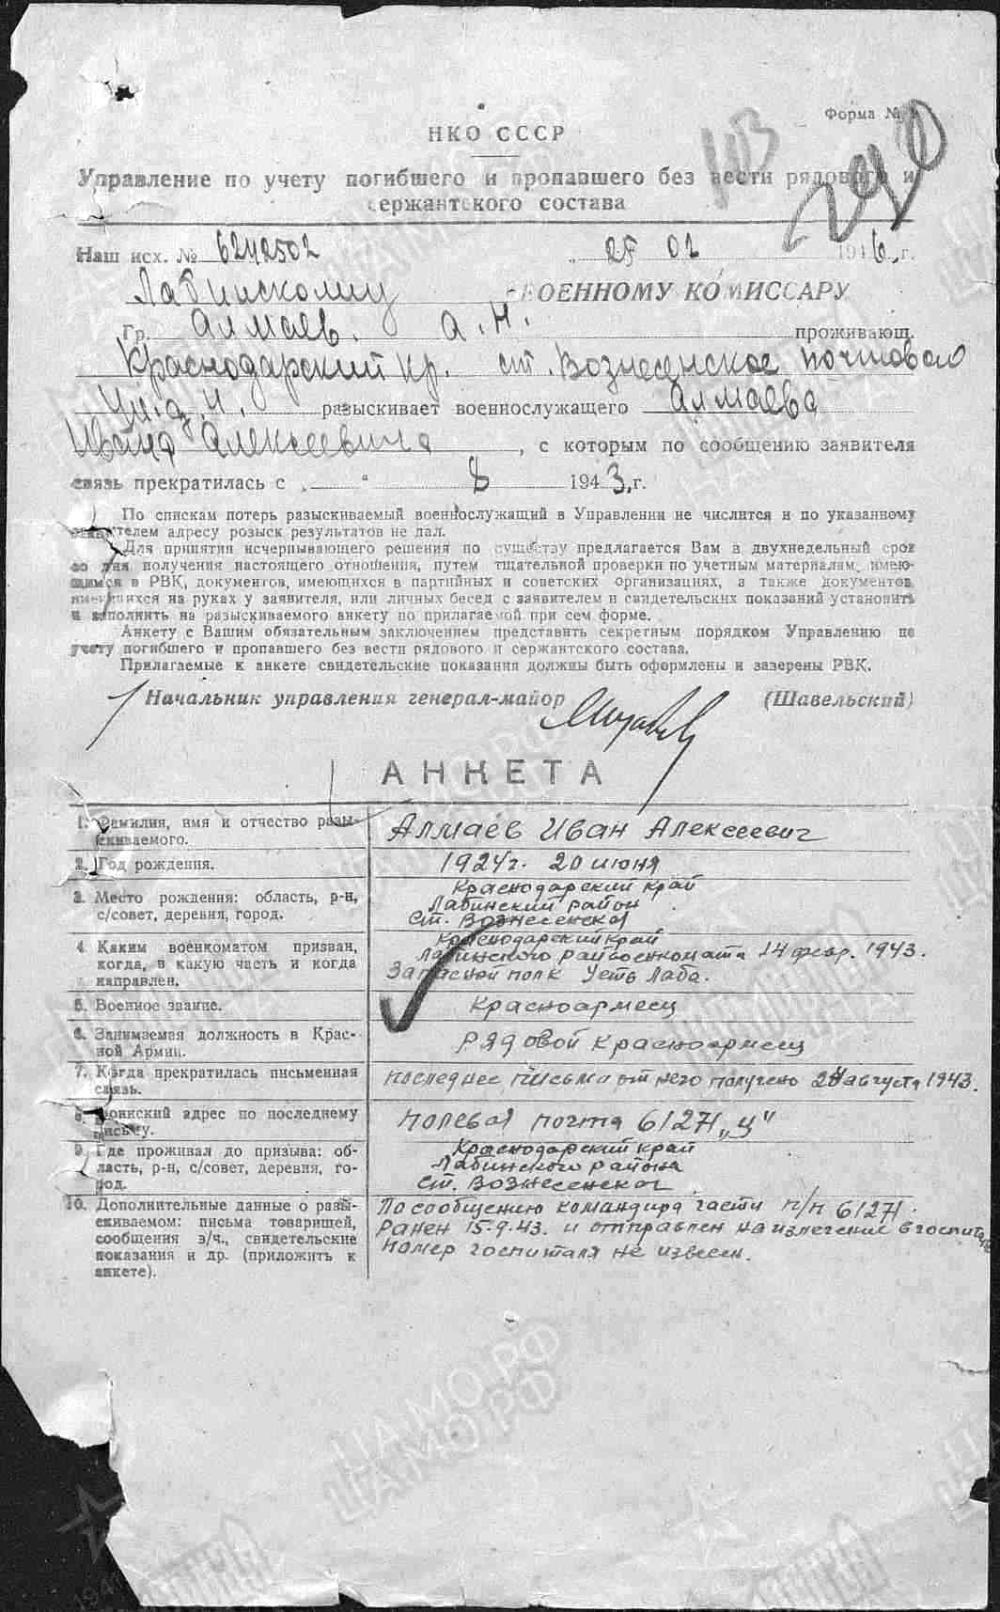 Форма №
НКО СССР
103
Управление по учету погибшего и пропавшего без вести рядового и
сержантского состава
Наш исх. № 6242502 02 1946 г.
Лабинскому ВОЕННОМУ КОМИССАРУ
Гр. Алмаев. А. Н. проживающ.
Краснодарский кр. ст. Вознесенское почтовая
разыскивает военнослужащего Алмаева
Ивана Алексеевича, с которым по сообщению заявителя
связь прекратилась с „ " 8 1943 г.
По спискам потерь разыскиваемый военнослужащий в Управлении не числится и по указанному
заявителем адресу розыск результатов не дал.
Для принятия исчерпывающего решения по существу предлагается Вам в двухнедельный срок
со дня получения настоящего отношения, путем тщательной проверки по учетным материалам, имею-
щимся в РВК, документов, имеющихся в партийных и советских организациях, а также документов,
имеющихся на руках у заявителя, или личных бесед с заявителем и свидетельских показаний установить
и заполнить на разыскиваемого анкету по прилагаемой при сем форме.
Анкету с Вашим обязательным заключением представить секретным порядком Управлению по
учету погибшего и пропавшего без вести рядового и сержантского состава.
Прилагаемые к анкете свидетельские показания должны быть оформлены и заверены РВК.
Начальник управления генерал-майор (Шавельский)
АНКЕТА
1. Фамилия, имя и отчество разы-
скиваемого.
Алмаев Иван Алексеевич
2. Год рождения.
1924 г. 20 июня
3. Место рождения: область, р-н,
с/совет, деревня, город.
Краснодарский край
Лабинский район
ст. Вознесенской
4. Каким военкоматом призван,
когда, в какую часть и когда
направлен.
Краснодарский край
Лабинского райвоенкомата 14 февр. 1943.
Запасной полк Усть Лаба.
5. Военное звание.
Красноармеец
6. Занимаемая должность в Крас-
ной Армии.
Рядовой красноармеец
7. Когда прекратилась письменная
связь.
последнее письмо от него получено августа 1943.
8. Воинский адрес по последнему
письму.
полевая почта 61271 „Ц"
9. Где проживал до призыва: об-
ласть, р-н, с/совет, деревня, го-
род.
Краснодарский край
Лабинского района
ст. Вознесенской
10. Дополнительные данные о разы-
скиваемом: письма товарищей,
сообщения з/ч., свидетельские
показания и др. (приложить к
анкете).
По сообщению командира части п/п 61271.
ранен 15.9.43. и отправлен на излечение в госпиталь
номер госпиталя не извесен.
ЦАМО.РФ
ЦАМО.РФ